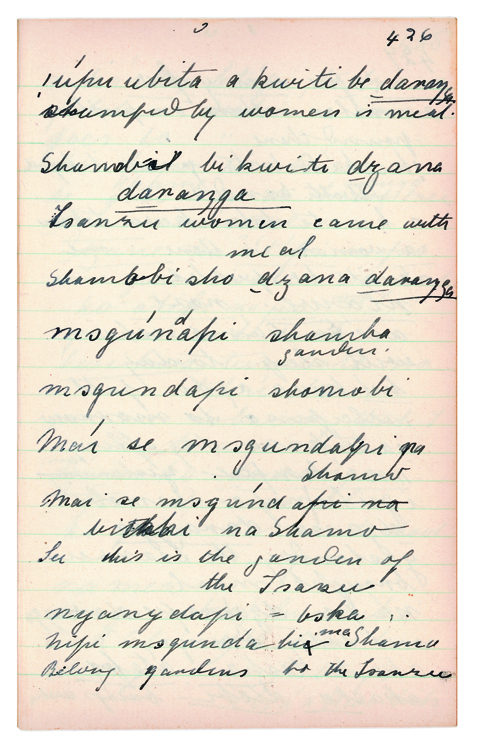 426
upu ubita a kwiti be daranga
stamped by women is meal.
Shambil bi kwiti dzana
daranga
Isanzu women came with
meal
Shambobi sho dzana daranga
msgúndapi shamba
garden
msgundapi shomobi
Mai se msgundapi pa
Shamo
Mai se msgund api na
bi na Shamo
See this is the garden of
the Isanzu
nyanydapi = boka
hipi msgunda bi ma Shamo
Belong gardens to the Isanzu